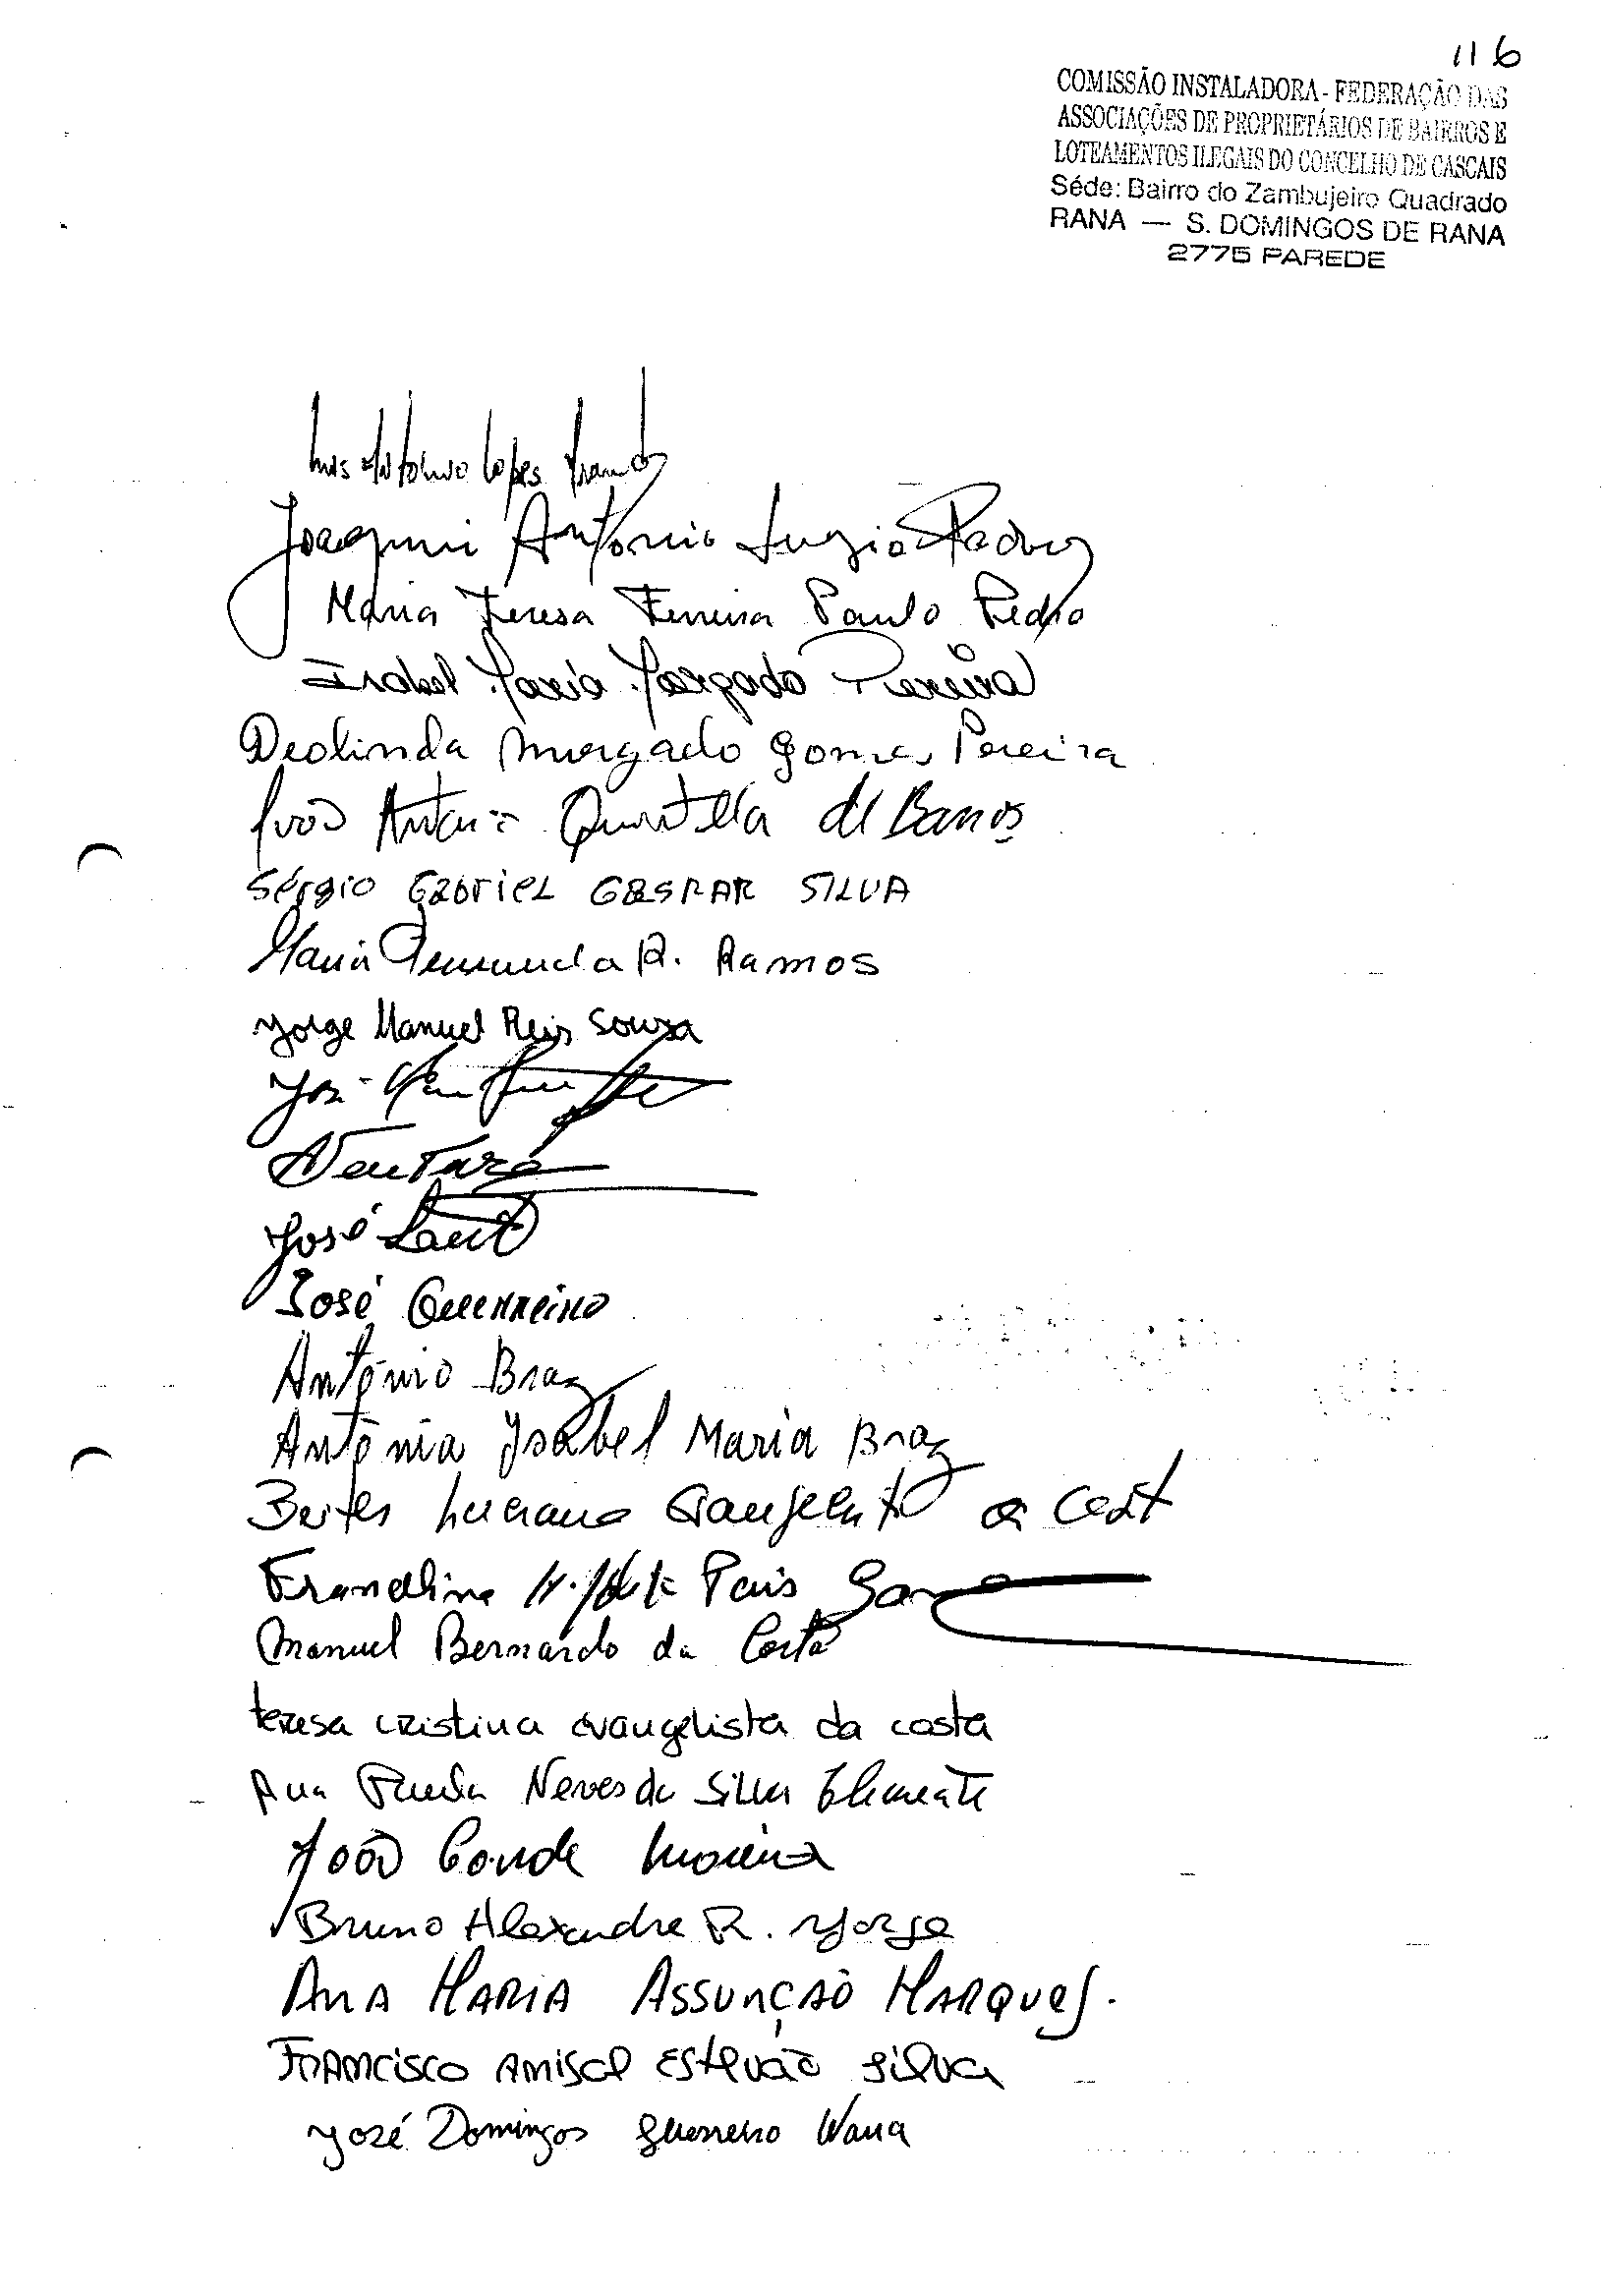 116
COMISSÃO INSTALADORA - FEDERAÇÃO DAS
ASSOCIAÇÕES DE PROPRIETÁRIOS DE BAIRROS E
LOTEAMENTOS ILEGAIS DO CONCELHO DE CASCAIS
Séde: Bairro do Zambujeiro Quadrado
RANA — S. DOMINGOS DE RANA
2775 PAREDE
Luis Antonio Lopes
Joaquim António Luzio
Maria Teresa Ferreira Paulo Pedro
Isabel Maria Morgado Pereira
Deolinda Murgado Gomes Pereira
João António Quintella de Barros
Sérgio Gabriel GASPAR SILVA
Maria Fernanda R. Ramos
Jorge Manuel Reis Sousa
José
Ventura
José
José Guerreiro
António Braz
Antónia Isabel Maria Braz
Luciano
Pais
Manuel Bernardo da Costa
teresa cristina evangelista da costa
Ana Paula Neves da Silva Clemente
João Conde Moreira
Bruno Alexandre R. Jorge
ANA MARIA ASSUNÇÃO MARQUES.
FRANCISCO Estevão Silva
José Domingos Guerreiro